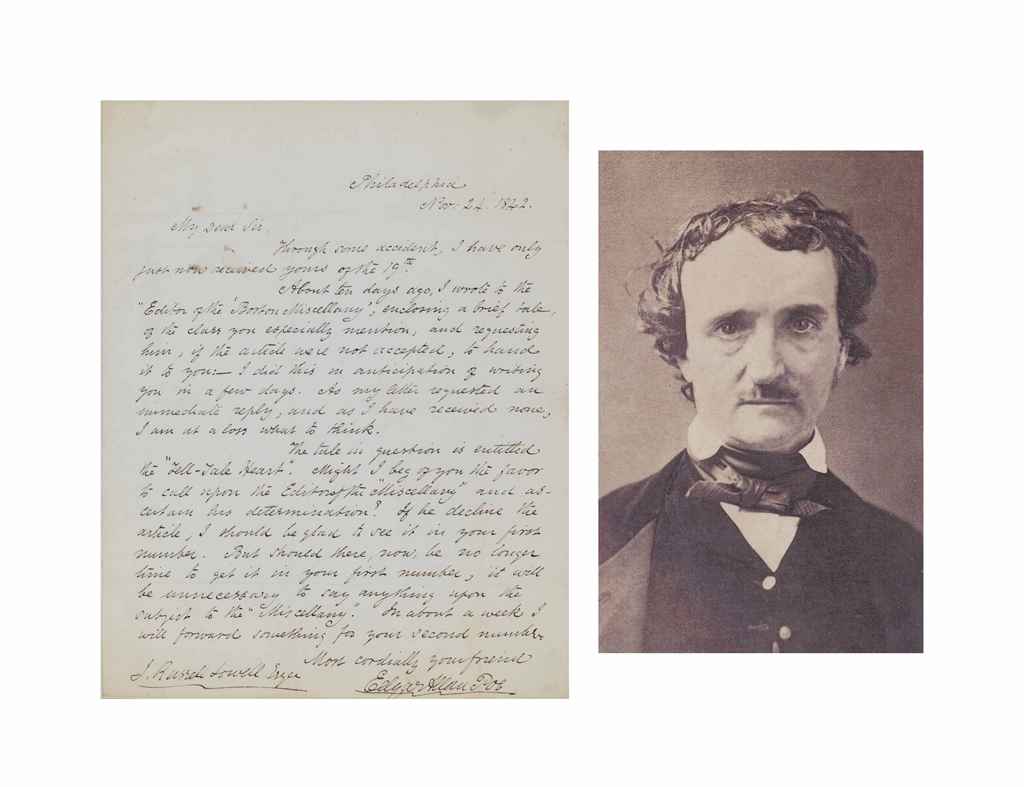 Philadelphia
Nov. 24. 1842.
My Dear Sir,
Through some accident, I have only
just now received yours of the 19th.
About ten days ago, I wrote to the
"Editor of the 'Boston Miscellany'", enclosing a brief tale,
of the class you especially mention, and requesting
him, if the article were not accepted, to hand
it to you:— I did this in anticipation of writing
you in a few days. As my letter requested an
immediate reply, and as I have received none,
I am at a loss what to think.
The tale in question is entitled
the "Tell-Tale Heart". Might I beg of you the favor
to call upon the Editor of the "Miscellany" and as-
certain his determination? If he decline the
article, I should be glad to see it in your first
number. But should there, now, be no longer
time to get it in your first number, it will
be unnecessary to say anything upon the
subject to the "Miscellany". In about a week I
will forward something for your second number.
Most cordially your friend
J. Russel Lowell Esqre
Edgar Allan Poe